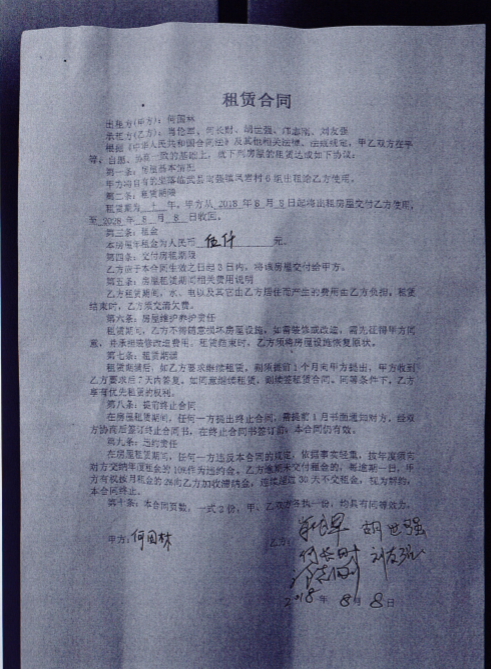 租赁合同
出租方(甲方)：何国林
承租方(乙方)：肖伦军、何长财、胡世强、邝志刚、刘友强
根据《中华人民共和国合同法》及其他相关法律、法规规定，甲乙双方在平
等、自愿、协商一致的基础上，就下列房屋的租赁达成如下协议：
第一条：房屋基本情况
甲方将自有的坐落临武县 6 组出租给乙方使用。
第二条：租赁期限
租赁期为 十 年，甲方从 2018 年 8 月 8 日起将出租房屋交付乙方使用，
至 2028 年 8 月 8 日收回。
第三条：租金
本房屋年租金为人民币 伍仟 元。
第四条：交付房租期限
乙方应于本合同生效之日起 3 日内，将该房屋交付给甲方。
第五条：房屋租赁期间相关费用说明
乙方租赁期间，水、电以及其它由乙方居住而产生的费用由乙方负担。租赁
结束时，乙方须交清欠费。
第六条：房屋维护养护责任
租赁期间，乙方不得随意损坏房屋设施，如需装修或改造，需先征得甲方同
意，并承担装修改造费用。租赁结束时，乙方须将房屋设施恢复原状。
第七条：租赁期满
租赁期满后，如乙方要求继续租赁，则须提前 1 个月向甲方提出，甲方收到
乙方要求后 7 天内答复。如同意继续租赁，则续签租赁合同。同等条件下，乙方
享有优先租赁的权利。
第八条：提前终止合同
在房屋租赁期间，任何一方提出终止合同，需提前 1 月书面通知对方，经双
方协商后签订终止合同书，在终止合同书签订前，本合同仍有效。
第九条：违约责任
在房屋租赁期间，任何一方违反本合同的规定，依据事实轻重，按年度须向
对方交纳年度租金的 10%作为违约金。乙方逾期未交付租金的，每逾期一日，甲
方有权按月租金的 2%向乙方加收滞纳金，连续超过 30 天不交租金，视为解约，
本合同终止。
第十条：本合同页数，一式 2 份，甲、乙双方各执一份，均具有同等效力。
甲方：何国林
乙方： 胡世强
何长财 刘友强
2018 年 8 月 8 日